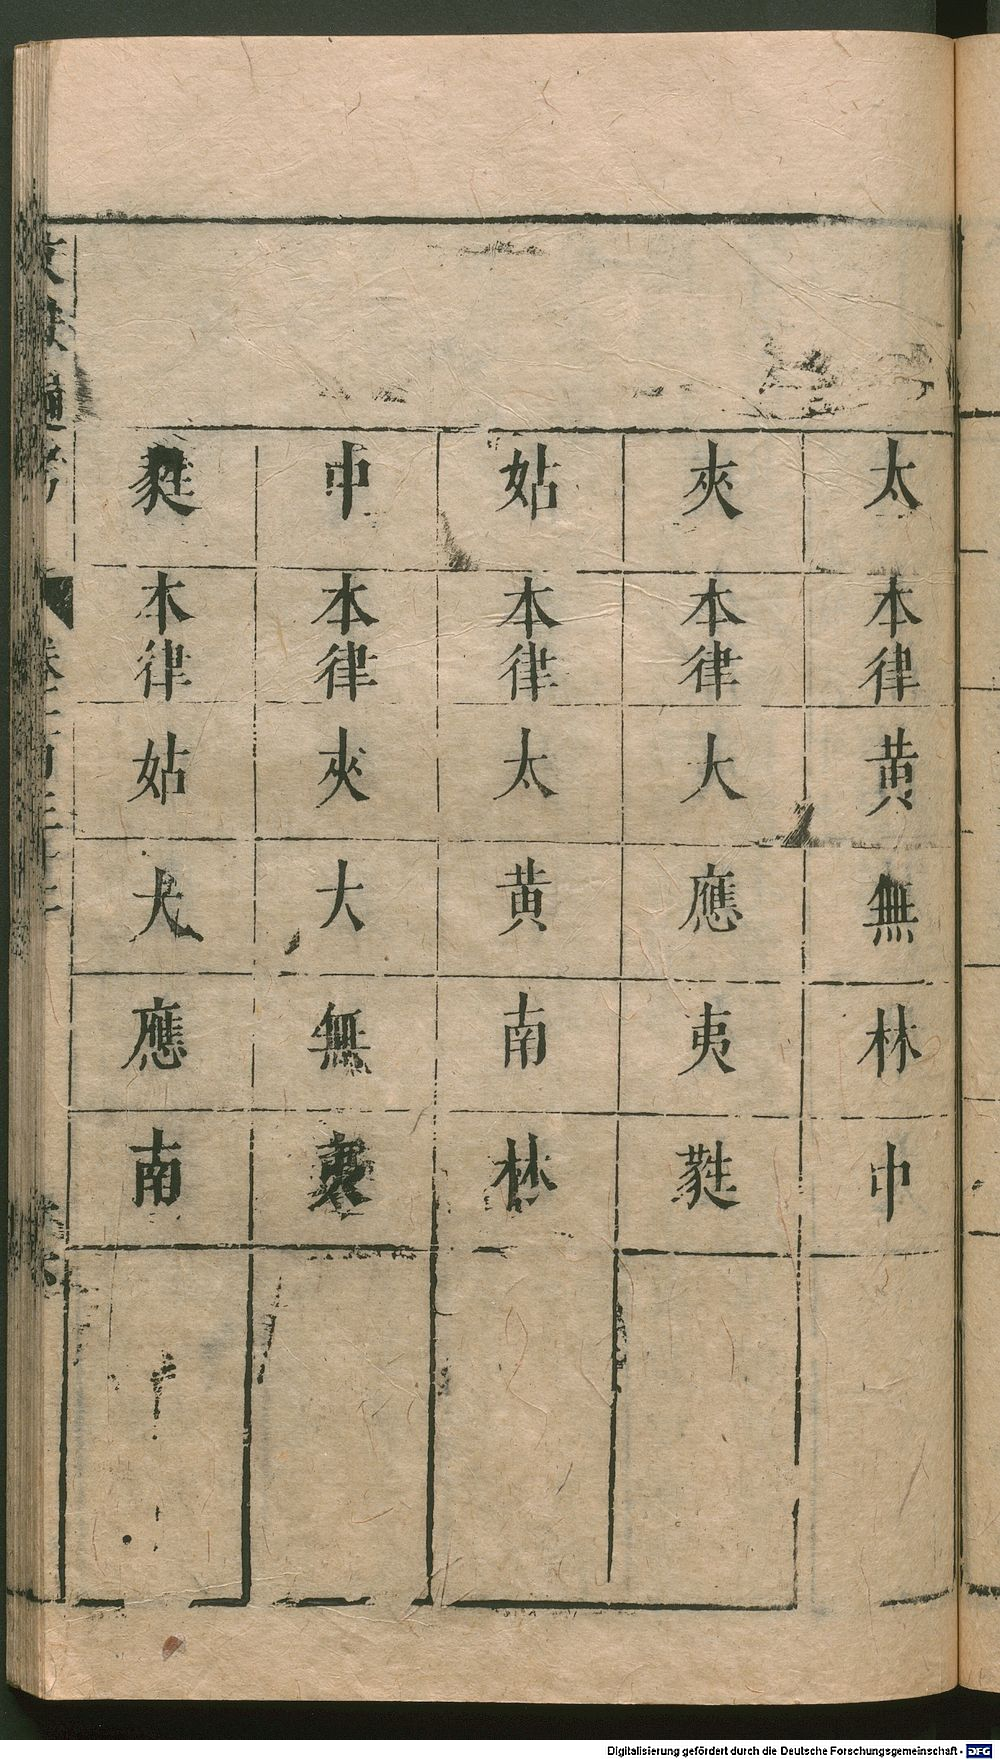 太 本律 黄 無 林 中
夾 本律 大 應 夷 蕤
姑 本律 太 黄 南 林
中 本律 夾 大 無 夷
蕤 本律 姑 太 應 南
文獻通考
Digitalisierung gefördert durch die Deutsche Forschungsgemeinschaft - DFG